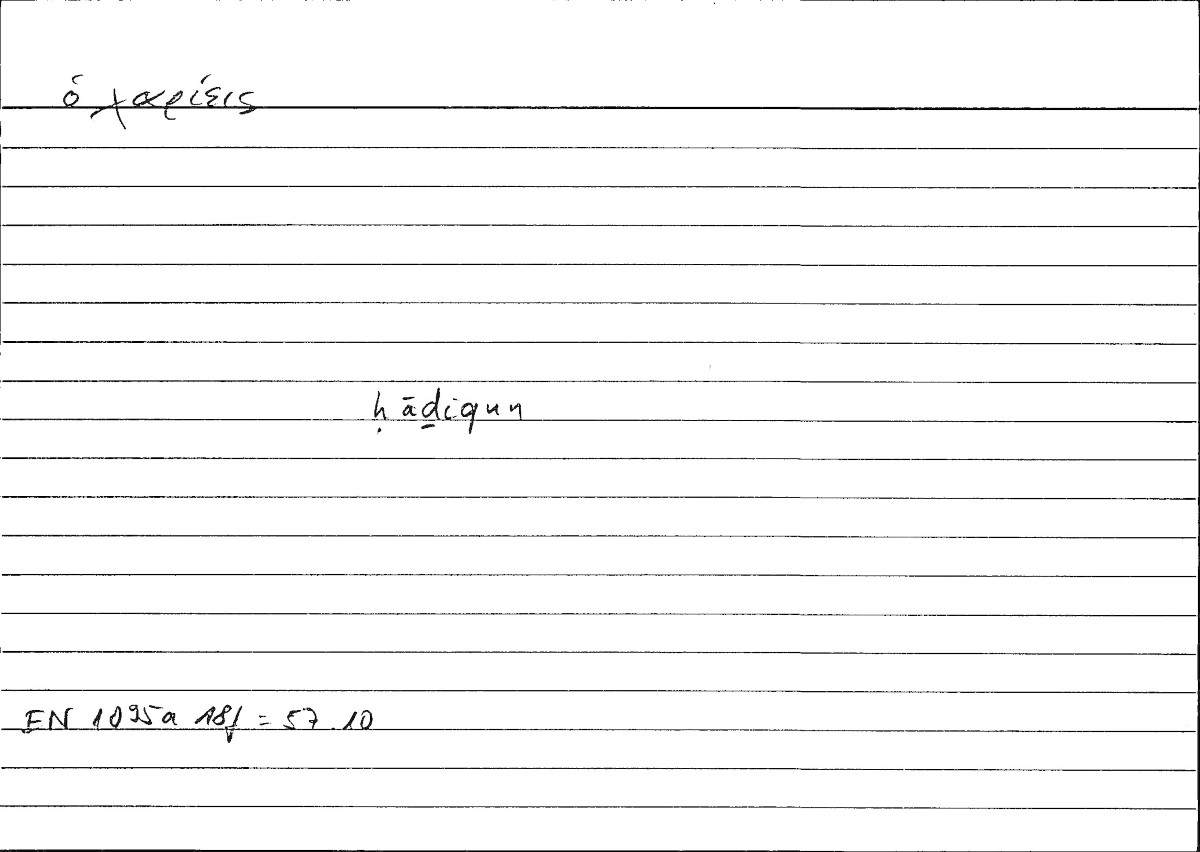 ὁ χαρίεις
ḥāḏiqun
EN 1095a 18f = 57.10